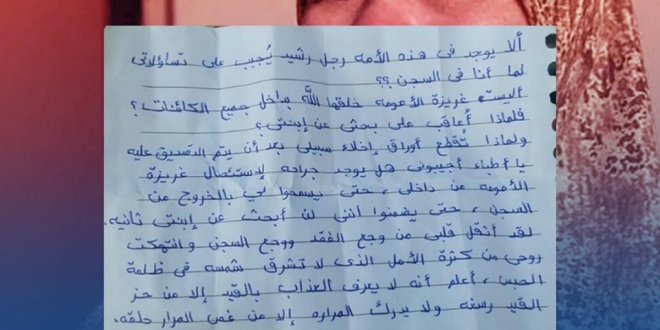 ألا يوجد فى هذه الأمه رجل رشيد يُجيب على تساؤلاتى
لما أنا فى السجن ؟؟
أليست غريزة الأمومه خلقها الله بداخل جميع الكائنات ؟
فلماذا أُعاقب على بحثى عن إبنتى ؟
ولماذا تُقطع أوراق إخلاء سبيلى بعد أن يتم التصديق عليه
يا أطباء أجيبونى هل يوجد جراحه لإستئصال غريزة
الأمومه من داخلى ، حتى يسمحوا لي بالخروج من
السجن ، حتى يضمنوا أننى لن أبحث عن إبنتى ثانيه .
لقد أثقل قلبى من وجع الفقد ووجع السجن و انتهكت
روحى من كثرة الأمل الذى لا تشرق شمسه فى ظلمة
الحبس ، أعلم أنه لا يعرف العذاب بالقيد إلا من حز
القيد رسغه ولا يدرك المراره إلا من غص المرار حلقه .